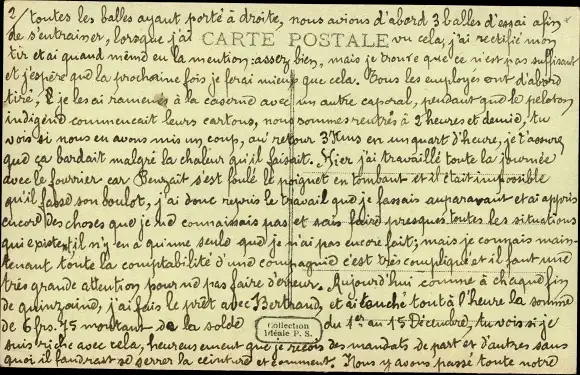 2/ toutes les balles ayant porté à droite, nous avions d'abord 3 balles d'essai afin
de s'entrainer, lorsque j'ai CARTE POSTALE vu cela, j'ai rectifié mon
tir et ai quand même eu la mention: assez bien, mais je trouve que ce n'est pas suffisant
et j'éspère que la prochaine fois je ferai mieux que cela. Tous les employés ont d'abord
tiré, & je les ai ramenés à la caserne avec un autre caporal, pendant que le peloton
indigène commencait leurs cartons, nous sommes rentrés à 2 heures et demie, tu
vois si nous en avons mis un coup, au retour 3 Kms en un quart d'heure, je t'assure
que ça bardait malgré la chaleur qu'il faisait. Hier j'ai travaillé toute la journée
avec le fourrier car s'est foulé le poignet en tombant et il était impossible
qu'il fasse son boulot, j'ai donc repris le travail que je faisais auparavant et ai appris
encore des choses que je ne connaissais pas et sais faire presque toutes les situations
qui existent, il n'y en a qu'une seule que je n'ai pas encore fait; mais je connais main-
tenant toute la comptabilité d'une compagnie c'est très compliqué et il faut une
très grande attention pour ne pas faire d'erreur. Aujourd'hui comme à chaque fin
de quinzaine, j'ai fais le prêt avec Bertrand, et ai touché tout à l'heure la somme
de 6 frs. 75 montant de la solde du 1er au 15 Décembre, tu vois si je
Collection
Idéale P. S.
suis riche avec cela, heureusement que je reçois des mandats de part et d'autres sans
quoi il faudrait se serrer la ceinture et comment. Nous y avons passé toute notre